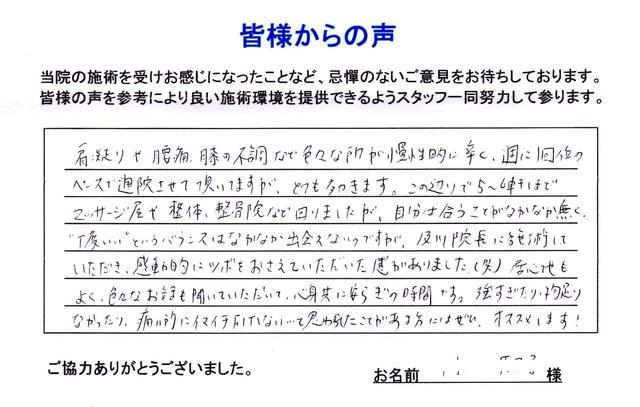 皆様からの声
当院の施術を受けお感じになったことなど、忌憚のないご意見をお待ちしております。
皆様の声を参考により良い施術環境を提供できるようスタッフ一同努力して参ります。
肩凝りや腰痛、膝の不調など色々な所が慢性的に辛く、週に1回位の
ペースで通院させて頂いてますが、とても効きます。この辺りで5〜6軒ほど
マッサージ屋や整体、整骨院など回りましたが、自分に合うことがなかなか無く、
"丁度いい"というバランスはなかなか出会えないのですが、及川院長に施術して
いただき、感動的にツボをおさえていただいた感がありました(笑) 居心地も
よく、色々なお話も聞いていただいて、心身共に安らぎの時間です。強すぎたり、物足り
なかったり、痛い所にイマイチ届かない…って思われたことがある方にはぜひ、オススメします!
ご協力ありがとうございました。
お名前 様